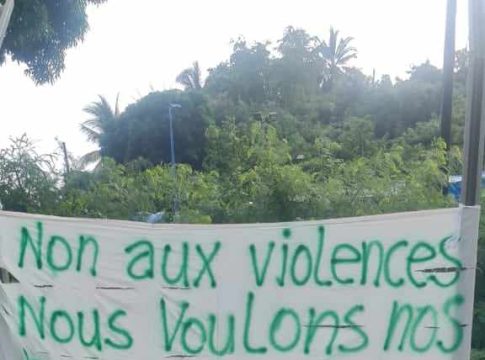 Non aux violences
Nous VouLons nos